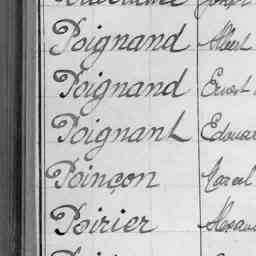 Poignand Albert
Poignand Ernest
Poignant Edouar
Poinçon Marcel
Poirier Alexan